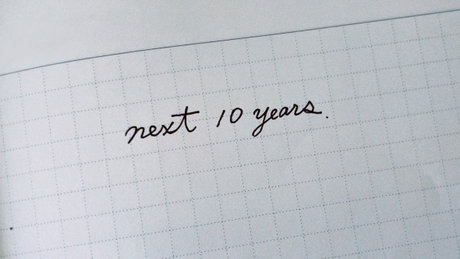 next 10 years.